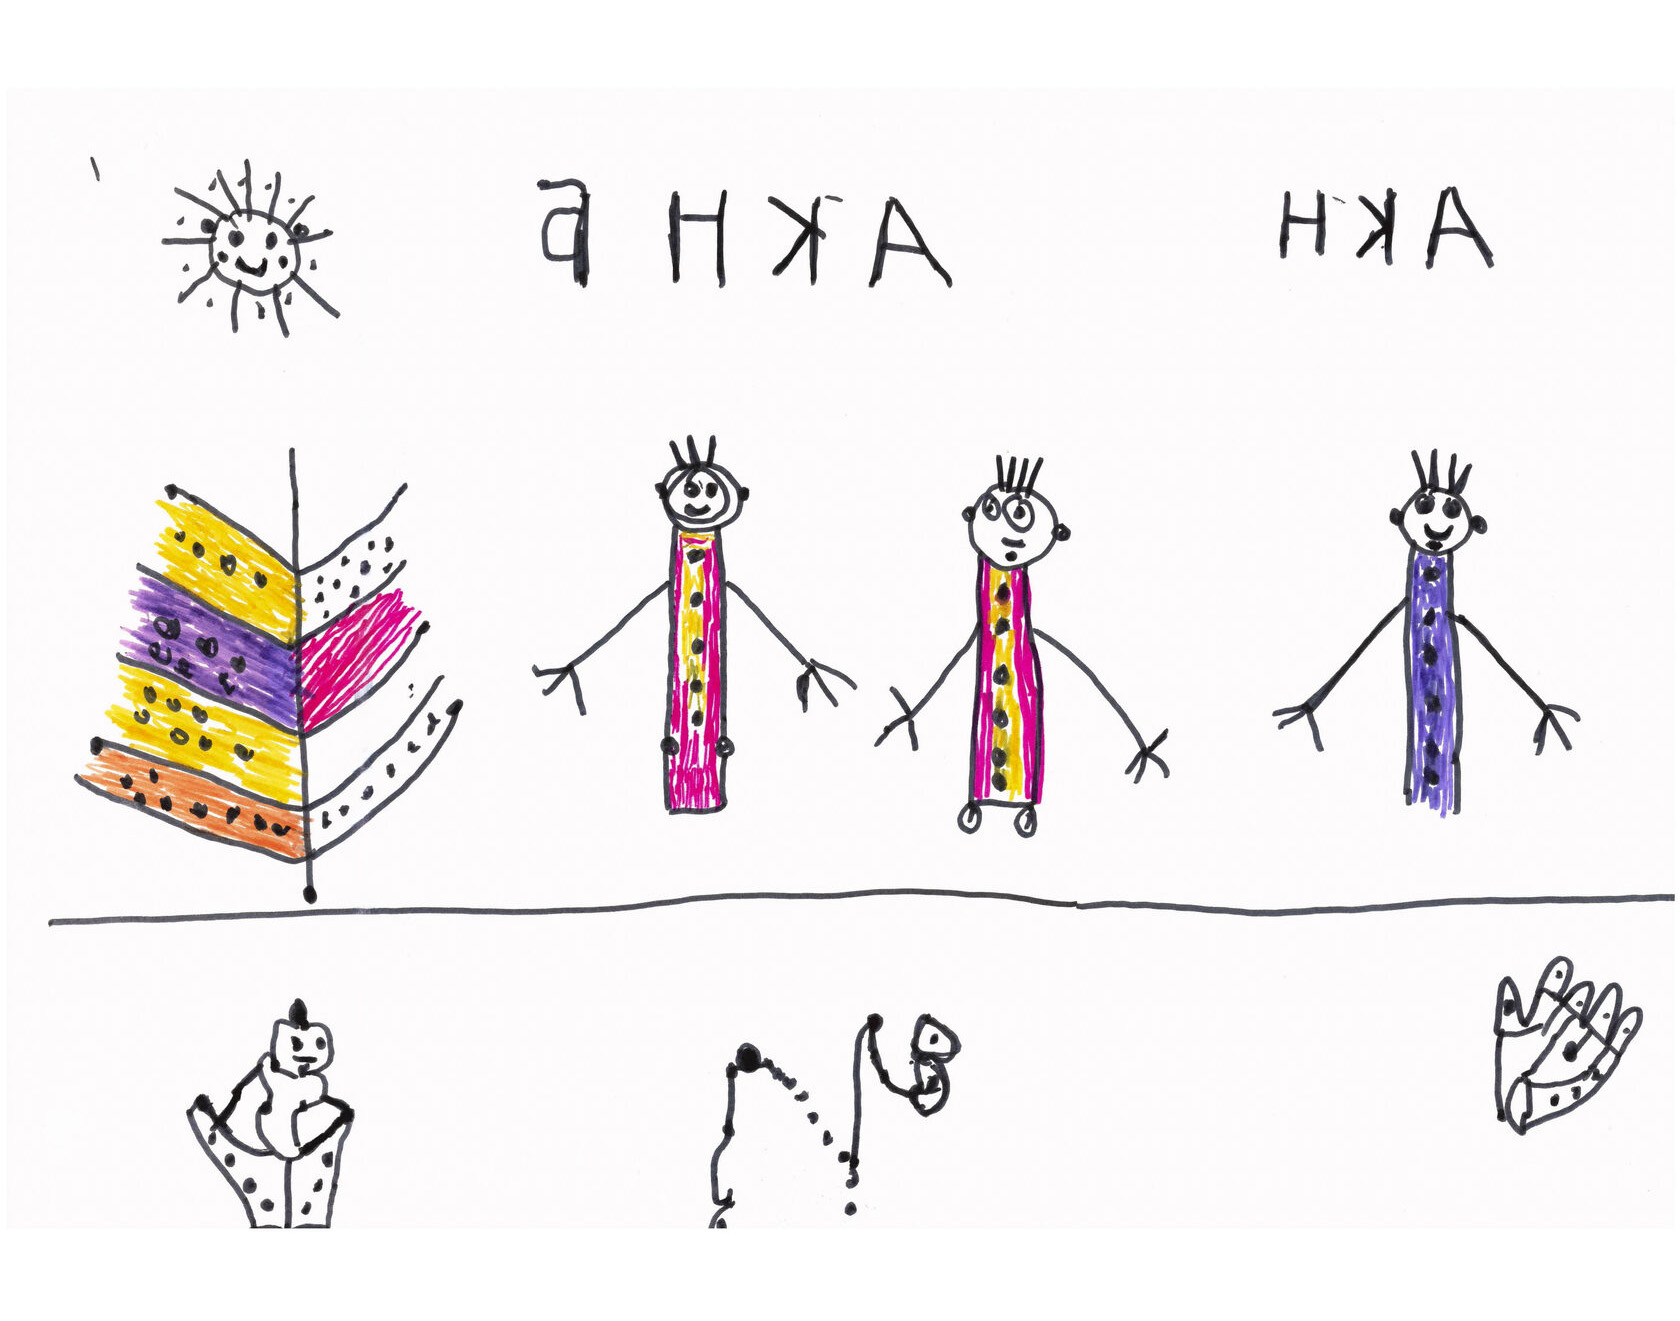 БНКА НКА